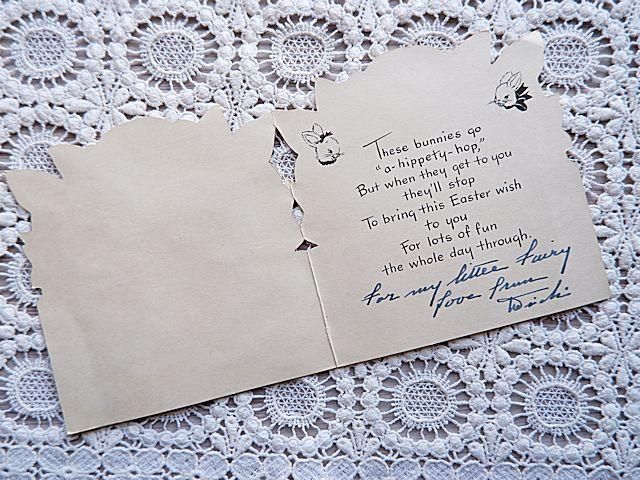 These bunnies go
"a-hippety-hop,"
But when they get to you
they'll stop
To bring this Easter wish
to you
For lots of fun
the whole day through.
For my little Fairy
Love from